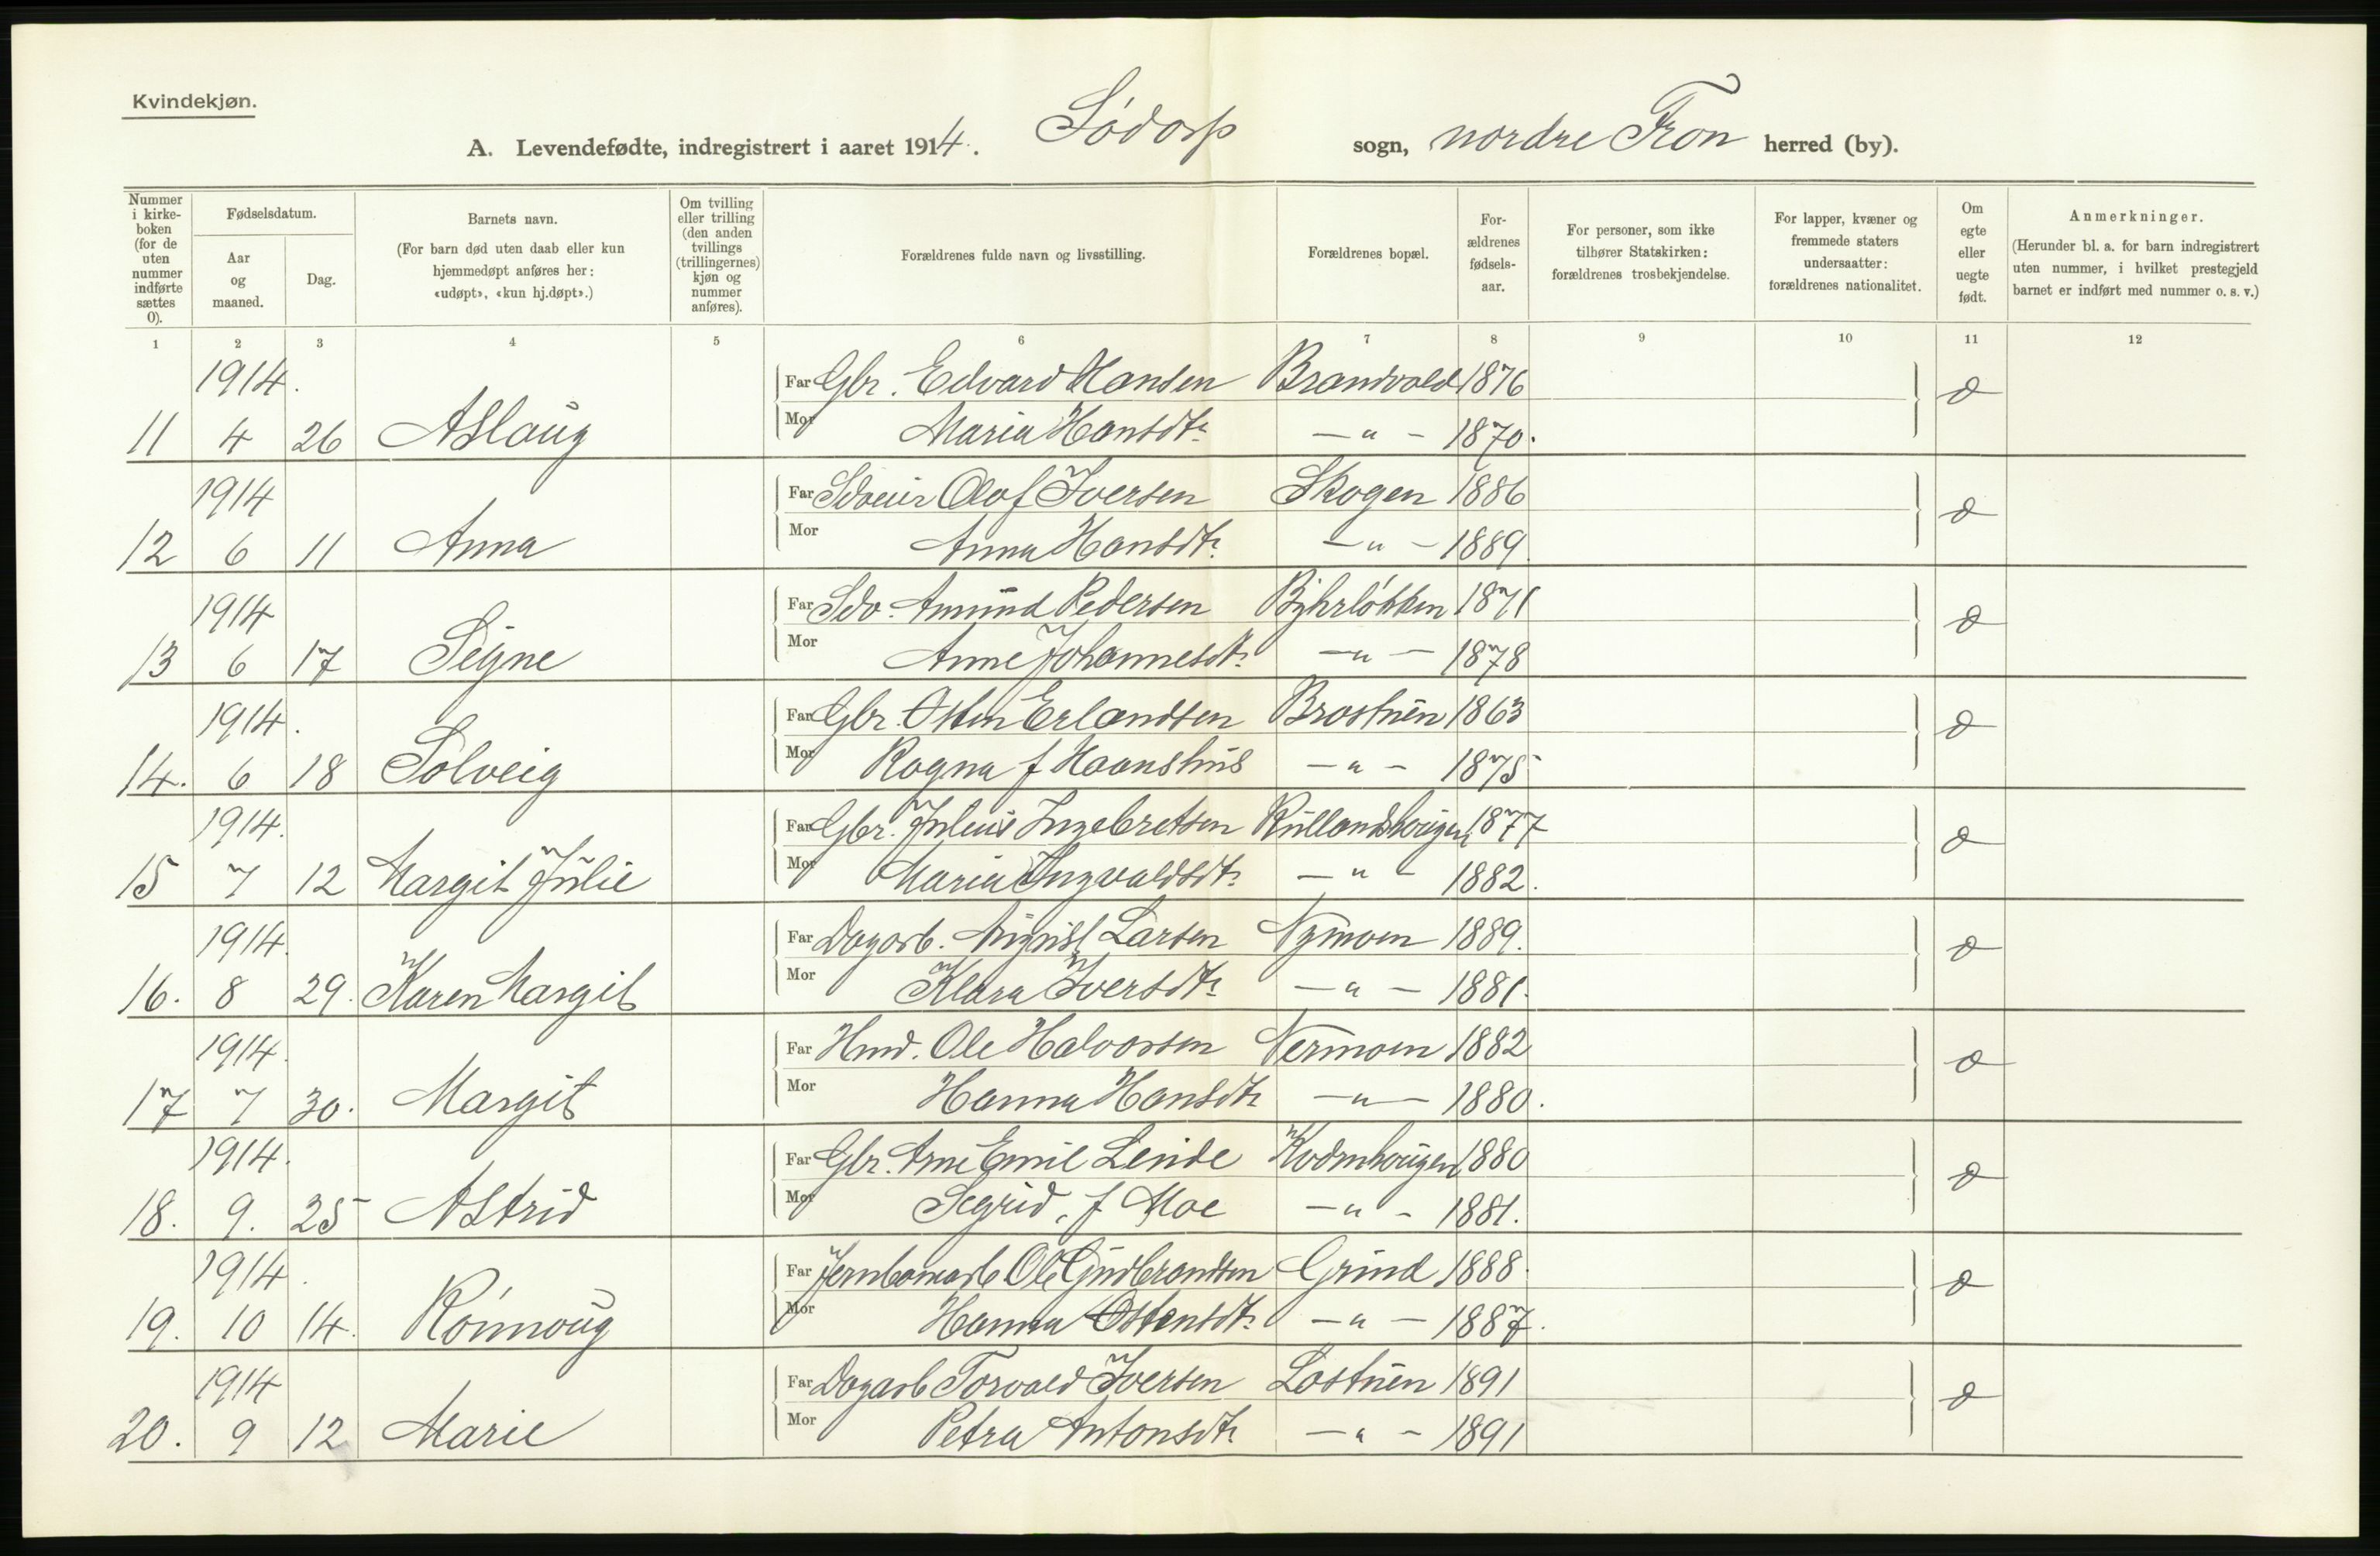 Kvindekjøn.
A. Levendefødte, indregistrert i aaret 1914. Sødorp sogn, nordre Fron herred (by).
Nummer i kirkeboken (for de uten nummer indførte sættes 0).
Fødselsdatum.
Aar og maaned.
Dag.
Barnets navn.
(For barn død uten daab eller kun hjemmedøpt anføres her: «udøpt», «kun hj.døpt».)
Om tvilling eller trilling (den anden tvillings (trillingernes) kjøn og nummer anføres).
Forældrenes fulde navn og livsstilling.
Forældrenes bopæl.
Forældrenes fødselsaar.
For personer, som ikke tilhører Statskirken: forældrenes trosbekjendelse.
For lapper, kvæner og fremmede staters undersaatter: forældrenes nationalitet.
Om egte eller uegte født.
Anmerkninger.
(Herunder bl. a. for barn indregistrert uten nummer, i hvilket prestegjeld barnet er indført med nummer o. s. v.)
1 2 3 4 5 6 7 8 9 10 11 12
1914. Far Gbr. Edvard Hansen Brandvold 1876
11 4 26 Aslaug Mor Maria Hansdtr. —"— 1870.
1914 Far Olof Iversen Skogen 1886
12 6 11 Anna Mor Anna Hansdtr. —"— 1889.
1914 Far Sdv. Amund Pedersen 1871
13 6 17 Signe Mor Anne Johannesdtr. —"— 1878
1914. Far Gbr. Østen Erlandsen Brostuen 1863
14. 6 18 Solveig Mor Ragna f Haanshus —"— 1875
1914. Far Gbr. Julius Ingebretsen Rullandshaugen 1877
15 7 12 Margit Julie Mor Maria Ingvaldsdtr. —"— 1882.
1914. Far Dagarb. August Larsen Nymoen 1889.
16. 8 29. Karen Margit Mor Klara Iversdtr. —"— 1881.
1914. Far Hmd. Ole Halvorsen Vermoen 1882
17 7 30. Margit Mor Hanna Hansdtr —"— 1880.
1914. Far Gbr. Arne Emil Leide Kvarnhaugen 1880
18. 9. 25 Astrid Mor Sigrid, f Moe —"— 1881.
1914. Far Jernbanearb Ole Gudbrandsen Grind 1888.
19. 10 14. Rønnoug Mor Hanna Østensdtr. —"— 1887.
1914 Far Dagarb Torvald Iversen Lostuen 1891
20. 9 12 Marie Mor Petra Antonsdtr. —"— 1891